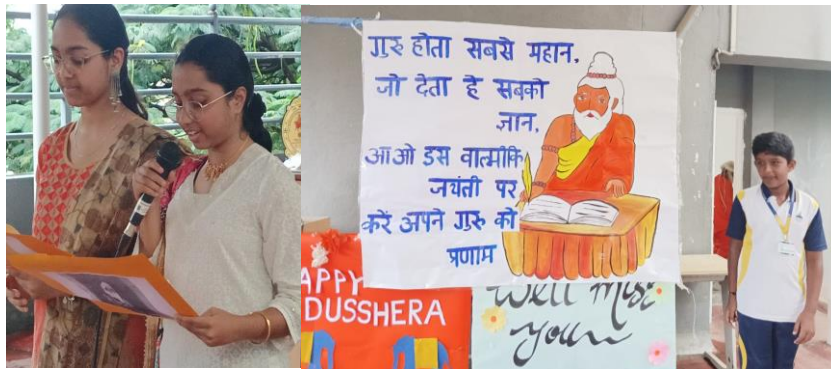 गुरु होता सबसे महान,
जो देता है सबको
ज्ञान,
आओ इस वाल्मीकि
जयंती पर
करें अपने गुरु को
प्रणाम
APPY
DUSSHERA
Well Miss
you